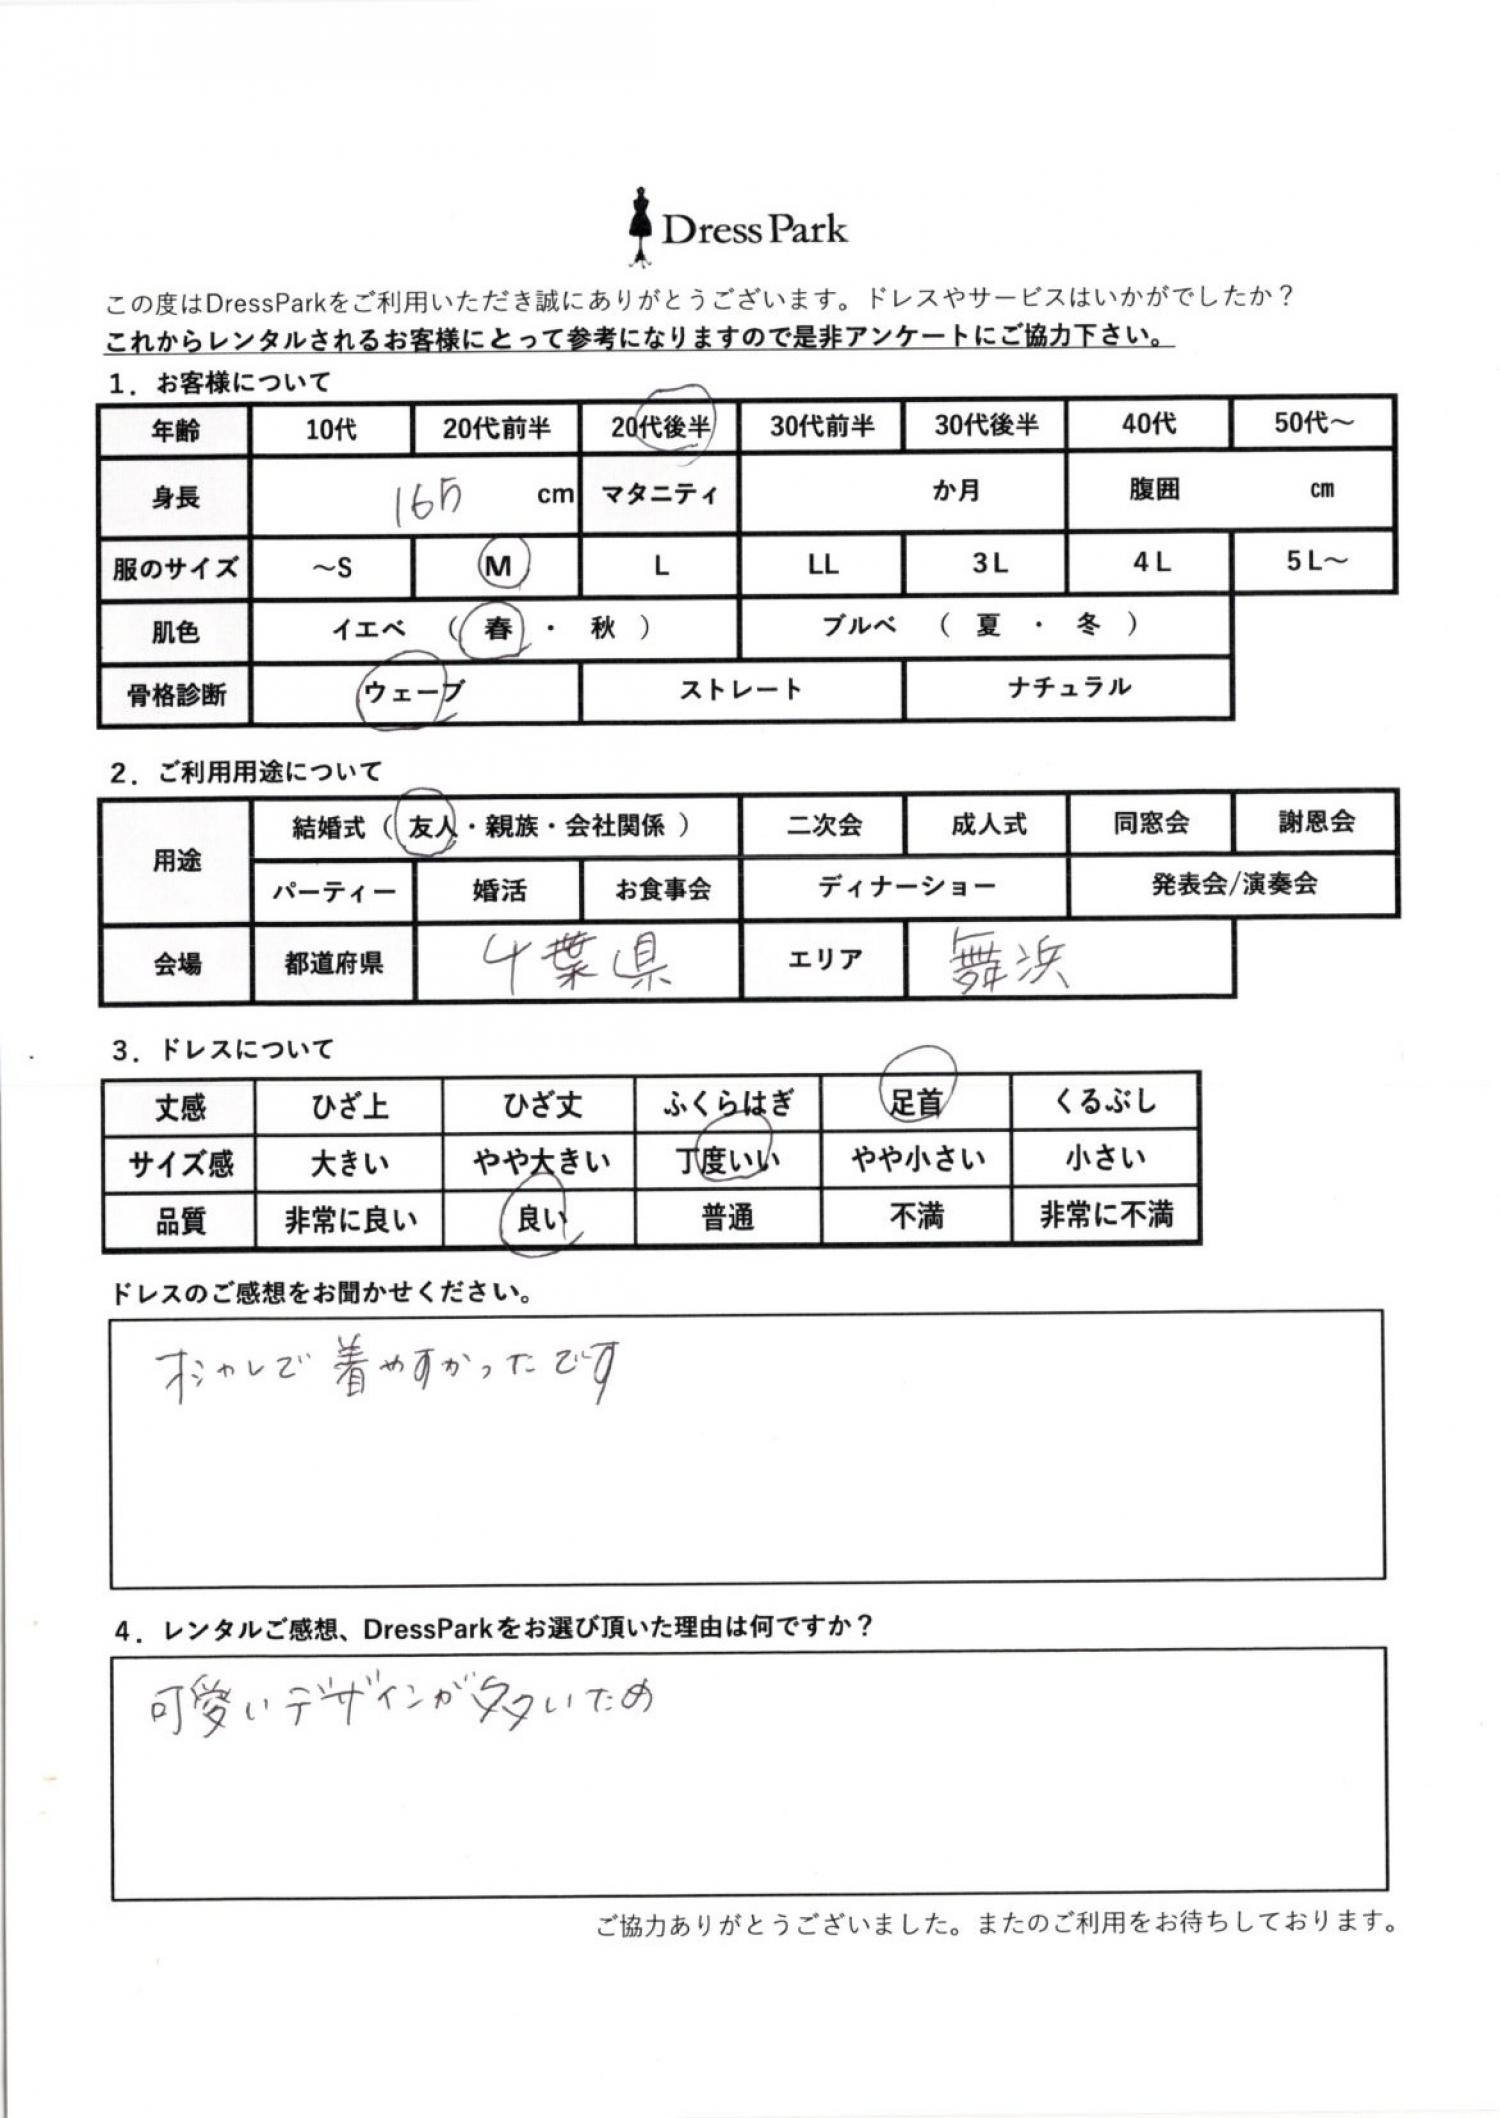 Dress Park
この度はDressParkをご利用いただき誠にありがとうございます。ドレスやサービスはいかがでしたか？
これからレンタルされるお客様にとって参考になりますので是非アンケートにご協力下さい。
1．お客様について
年齢 10代 20代前半 20代後半 30代前半 30代後半 40代 50代～
身長 165 cm マタニティ か月 腹囲 cm
服のサイズ ～S M L LL 3L 4L 5L～
肌色 イエベ （ 春 ・ 秋 ） ブルベ （ 夏 ・ 冬 ）
骨格診断 ウェーブ ストレート ナチュラル
2．ご利用用途について
用途 結婚式（ 友人・親族・会社関係 ） 二次会 成人式 同窓会 謝恩会
パーティー 婚活 お食事会 ディナーショー 発表会/演奏会
会場 都道府県 千葉県 エリア 舞浜
3．ドレスについて
丈感 ひざ上 ひざ丈 ふくらはぎ 足首 くるぶし
サイズ感 大きい やや大きい 丁度いい やや小さい 小さい
品質 非常に良い 良い 普通 不満 非常に不満
ドレスのご感想をお聞かせください。
オシャレで着やすかったです
4．レンタルご感想、DressParkをお選び頂いた理由は何ですか？
可愛いデザインが多いため
ご協力ありがとうございました。またのご利用をお待ちしております。